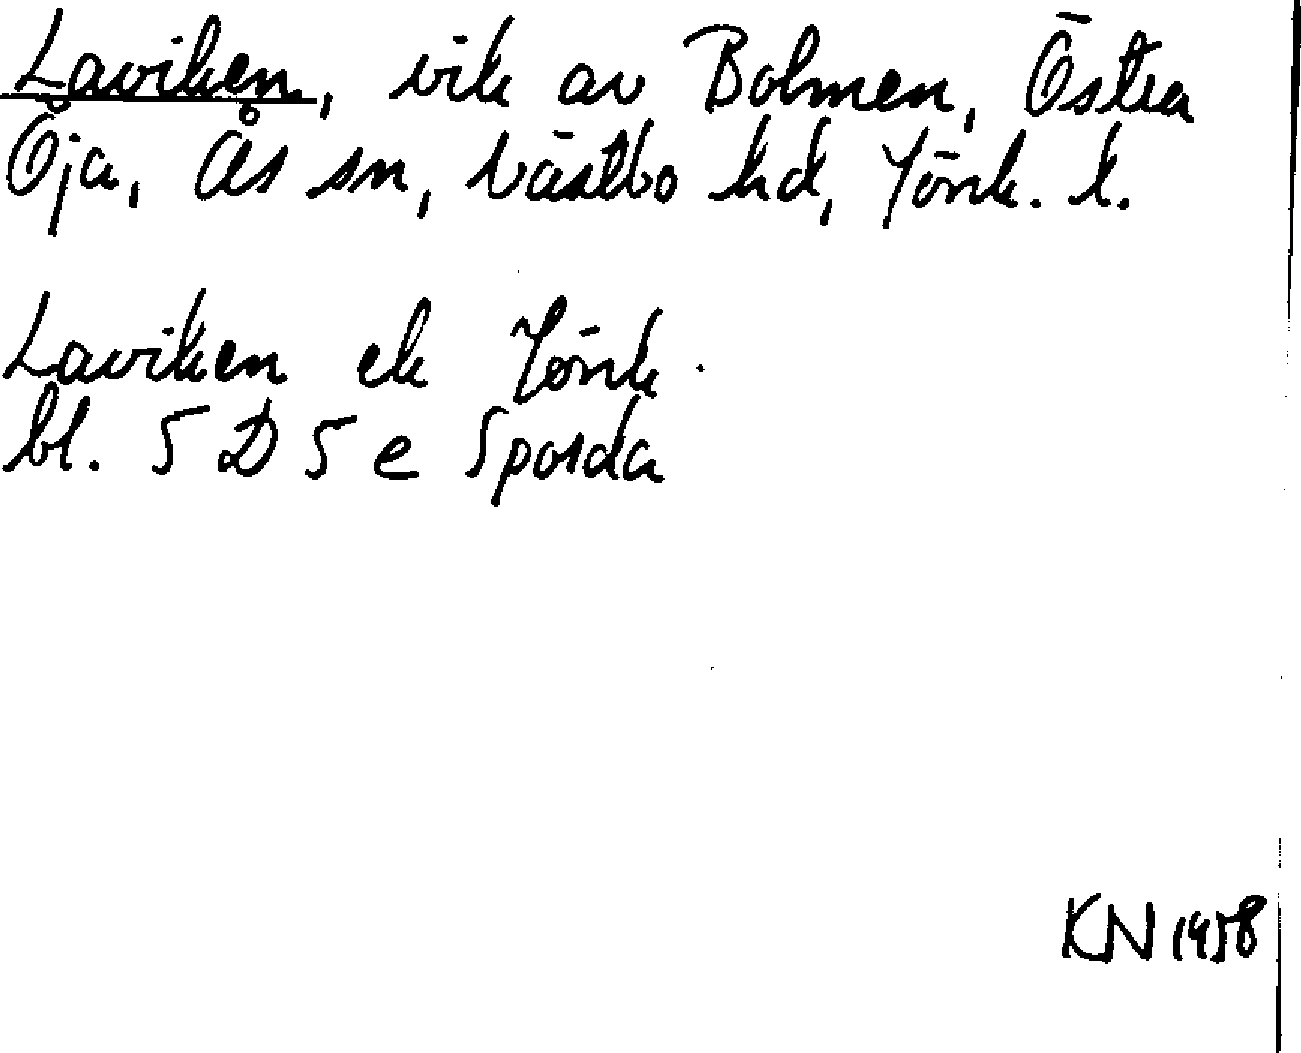 Laviken, vik av Bolmen, Östra
Öja, Ås sn, Västbo hd, Jönk. l.
Laviken ek Jönk.
bl. 5 D 5 e Sporda
KN 1958